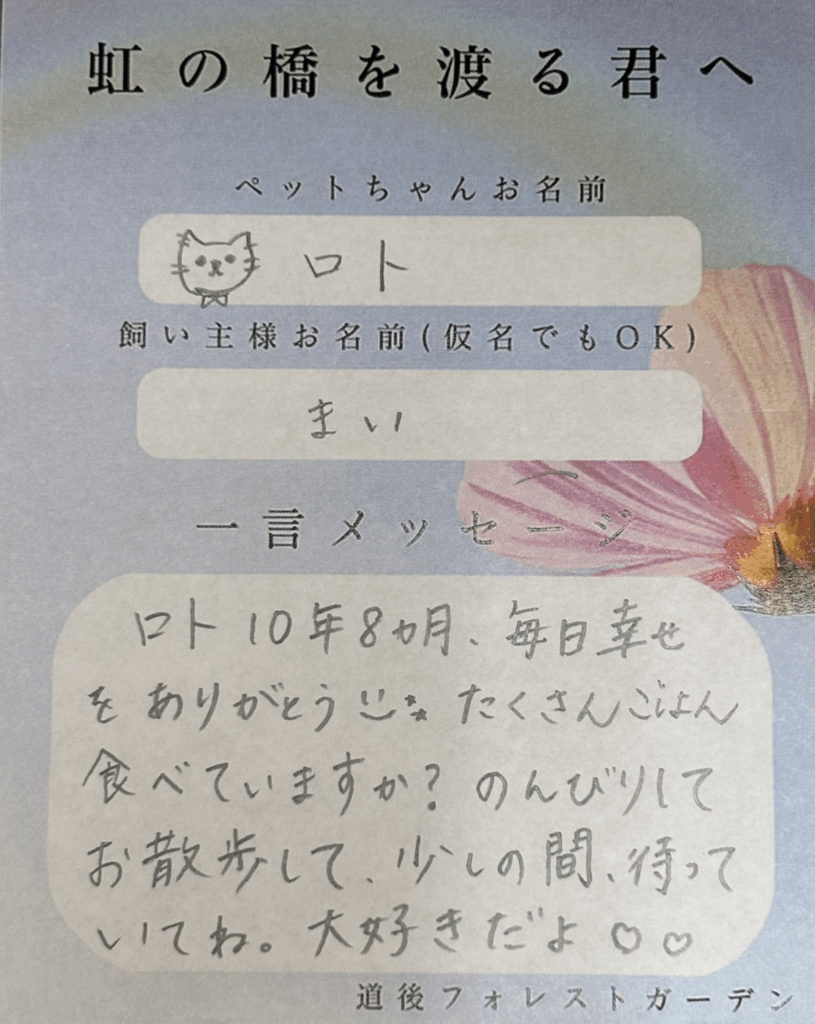 虹の橋を渡る君へ
ペットちゃんお名前
ロト
飼い主様お名前(仮名でもOK)
まい
一言メッセージ
ロト10年8ヵ月、毎日幸せ
をありがとう たくさんごはん
食べていますか?のんびりして
お散歩して、少しの間、待って
いてね。大好きだよ♡♡
道後フォレストガーデン